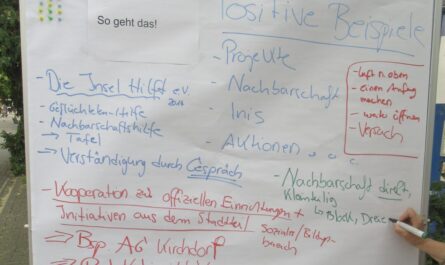 So geht das!
Positive Beispiele
- Projekte
- Nachbarschaft
- Inis
- Aktionen . . .
- Luft n. oben
- einen Anfang machen
- Versuch
- Die Insel Hilft e.V.
- Geflüchteten-Hilfe
- Nachbarschaftshilfe
→ Tafel
→ Verständigung durch Gespräch
- Nachbarschaft direkt,
Kleinteilig
↳ Block,
- Kooperation zu offiziellen Einrichtungen +
Initiativen aus dem Stadtteil
Sozialer/Bildungs-
bereich
⇒ Bsp. AG Kirchdorf